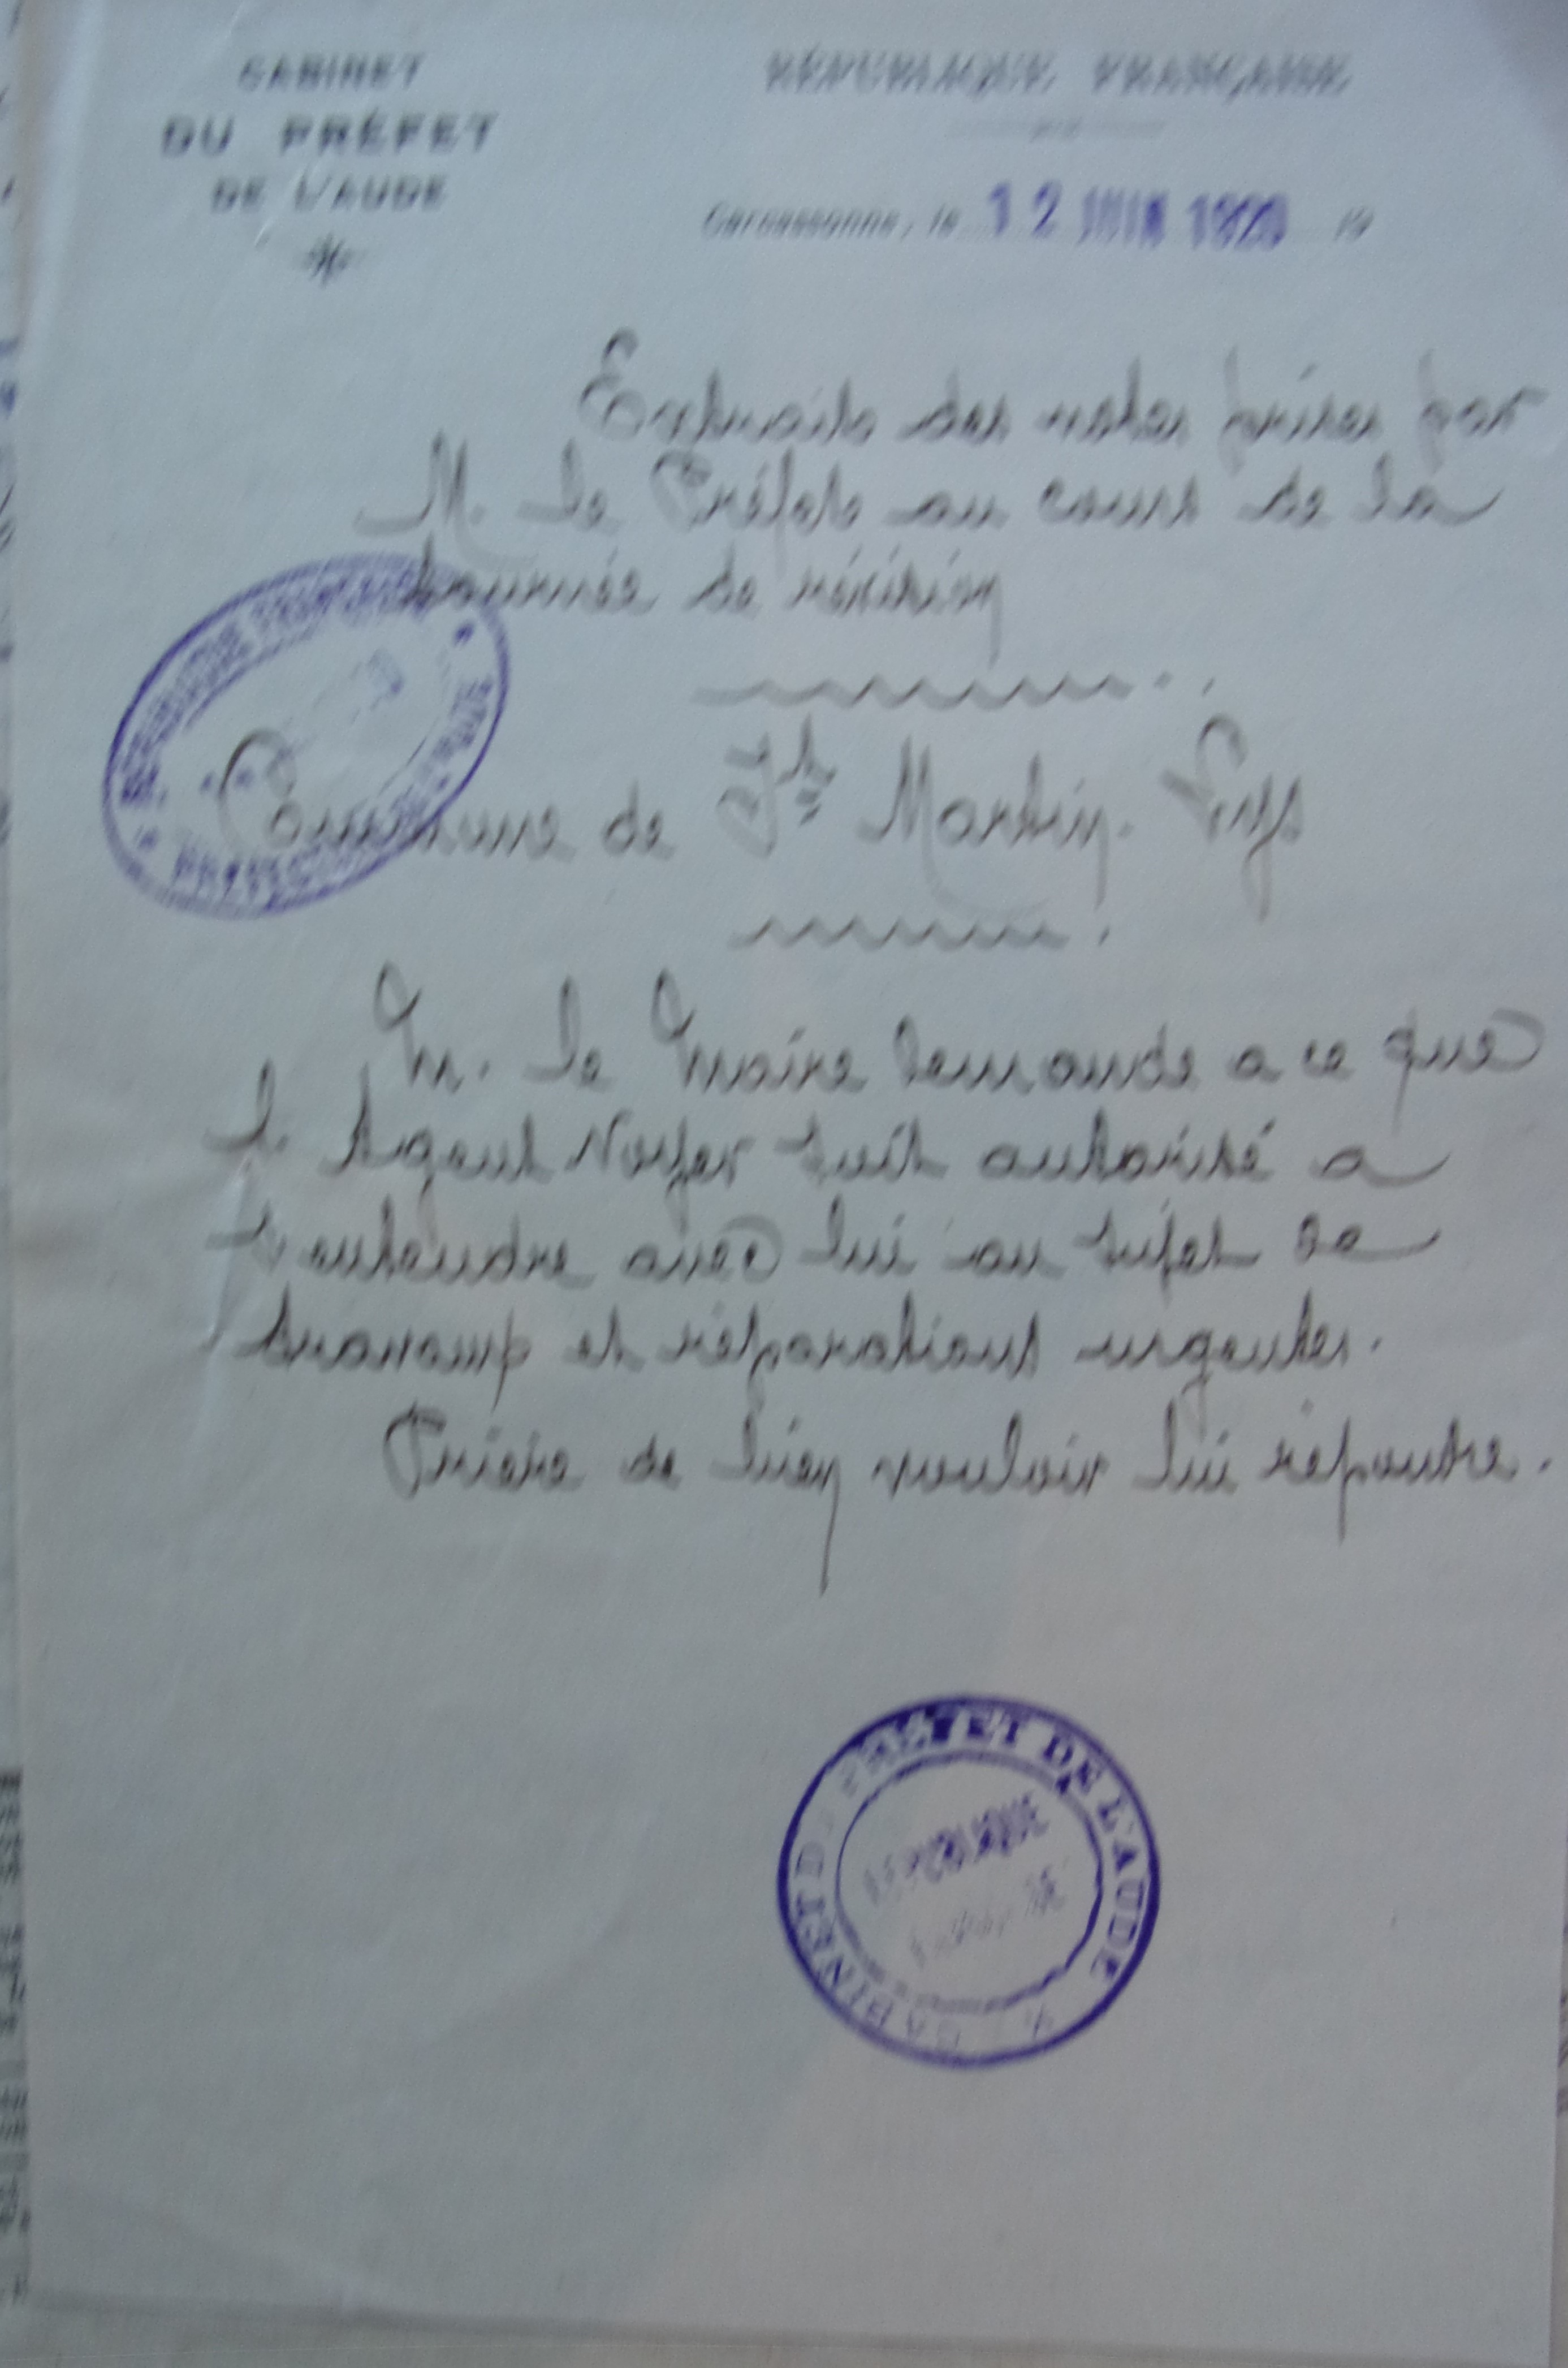 CABINET
DU PRÉFET
DE L'AUDE
RÉPUBLIQUE FRANÇAISE
Carcassonne, le 12 JUIN 1920 19
Extraits des notes prises par
M. le Préfet au cours de la
tournée de révision
Commune de St Martin. Lys
M. le Maire demande a ce que
l. Agent Voyer soit autorisé a
s entendre avec lui au sujet de
travaux et réparations urgentes.
Prière de bien vouloir lui répondre.
RÉPUBLIQUE FRANÇAISE
PRÉFECTURE
CABINET DU PRÉFET DE L'AUDE
RÉPUBLIQUE